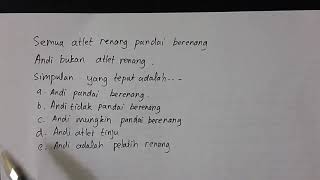 Semua atlet renang pandai berenang
Andi bukan atlet renang.
Simpulan yang tepat adalah---
a. Andi pandai berenang.
b. Andi tidak pandai berenang
c. Andi mungkin pandai berenang
d. Andi atlet tinju
e. Andi adalah pelatih renang